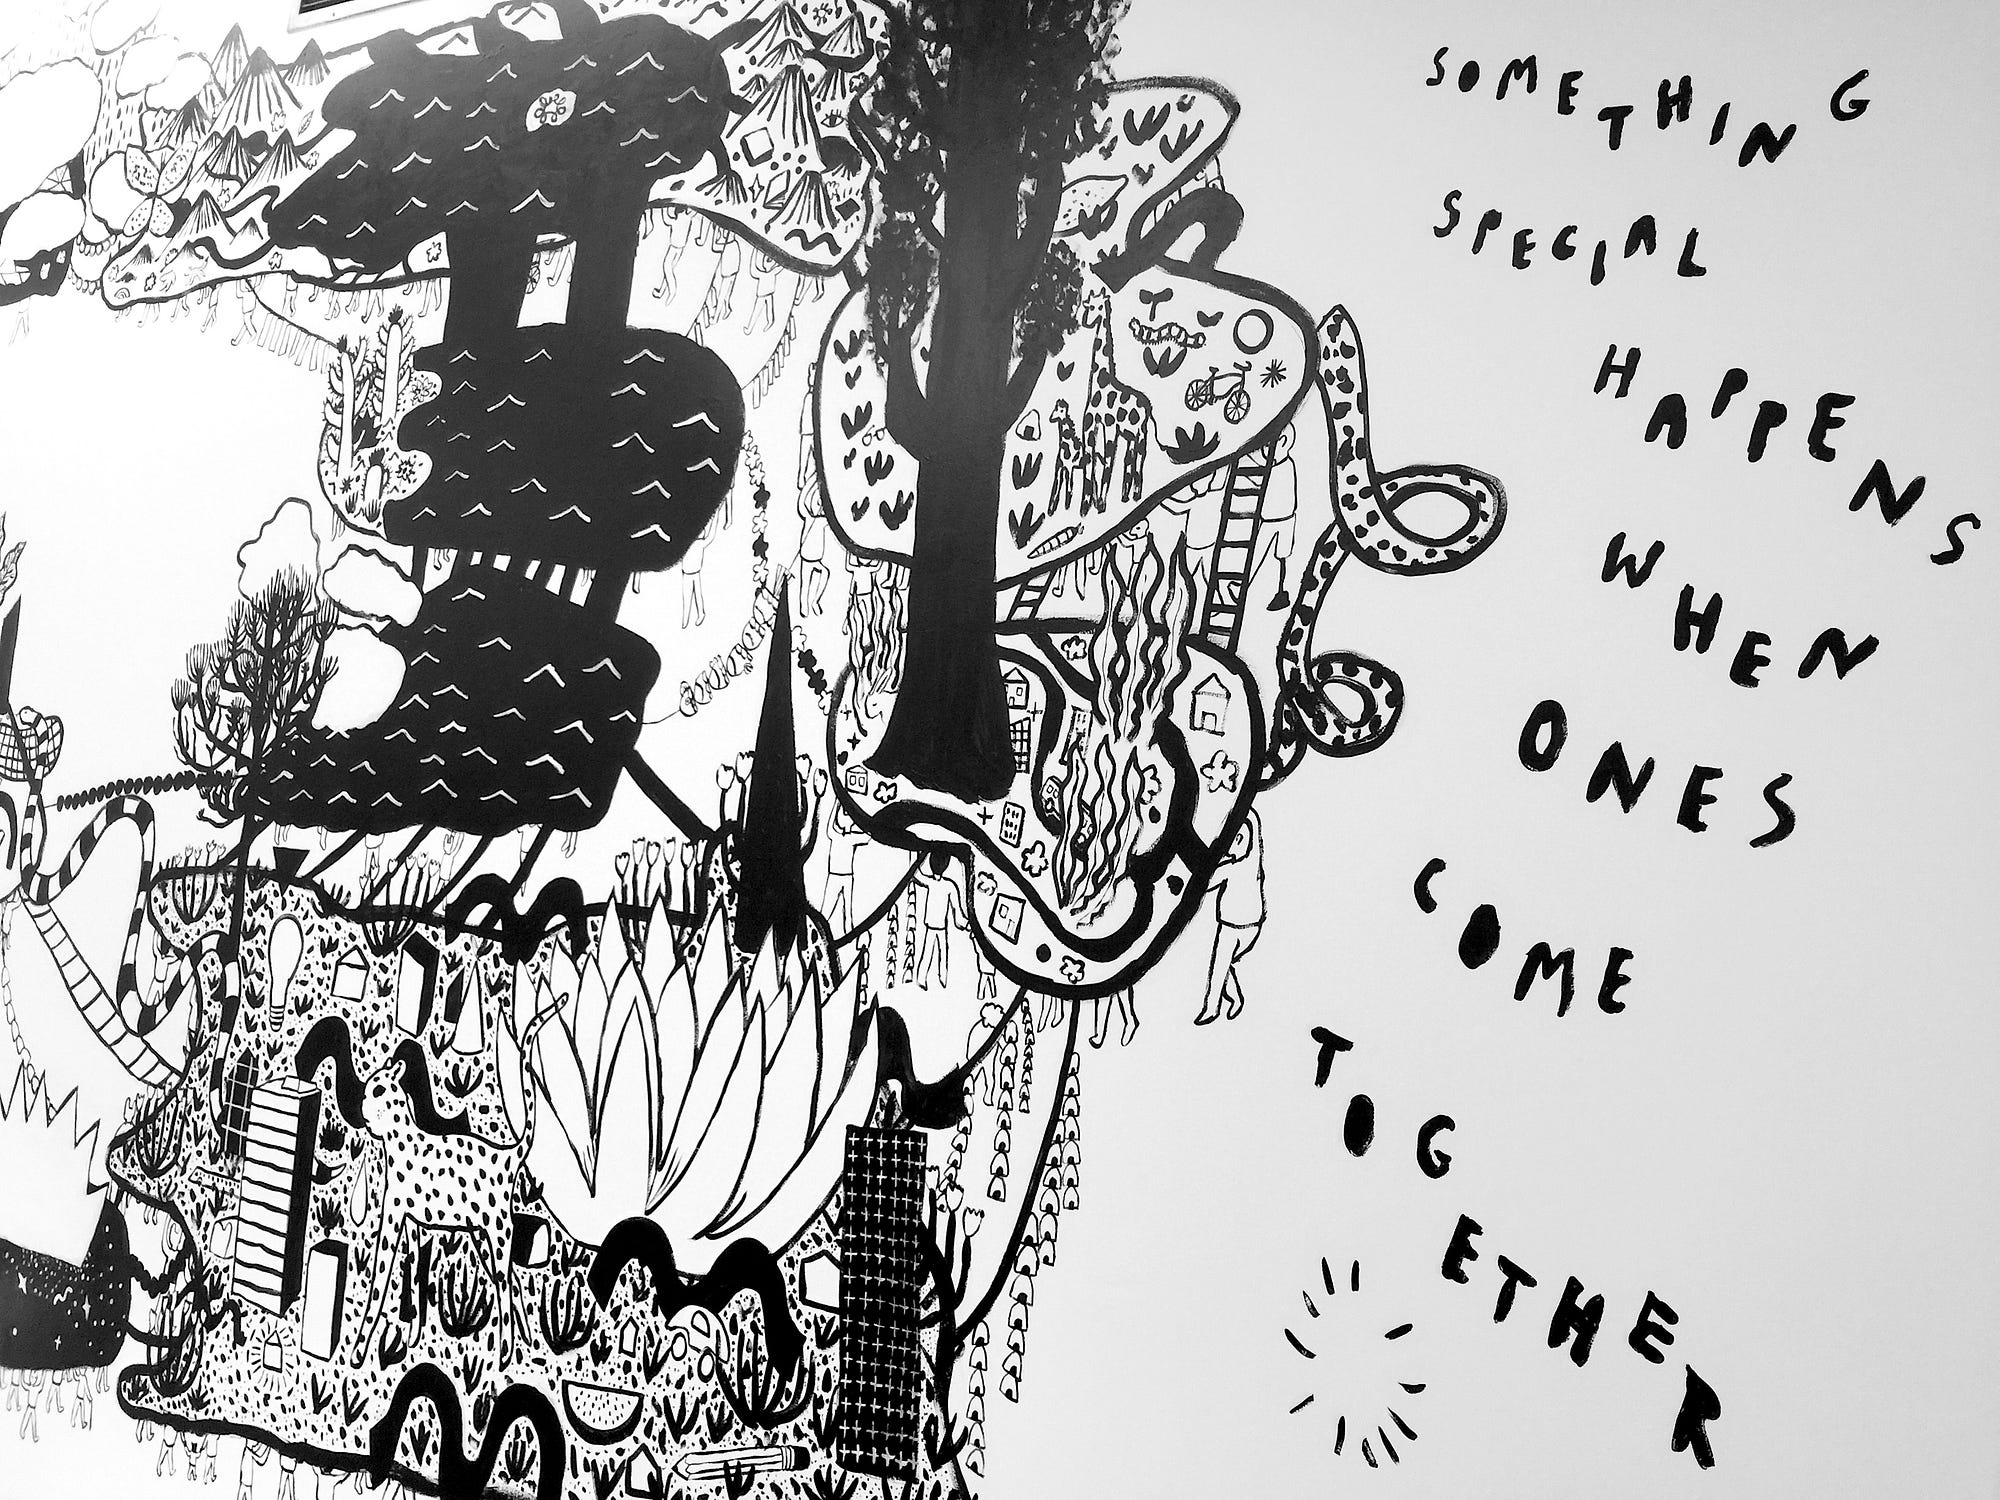 SOMETHING
SPECIAL
HAPPENS
WHEN
ONES
COME
TOGETHER